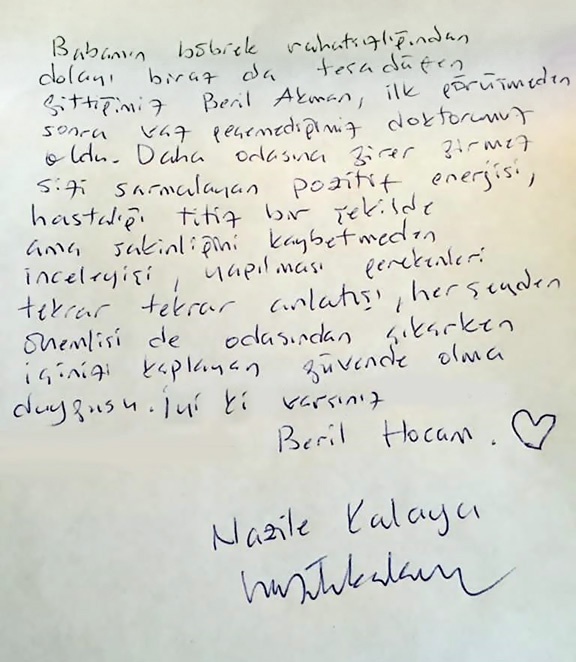 Babamın böbrek rahatsızlığından
dolayı biraz da tesadüfen
gittiğimiz Beril Akman, ilk görüşmeden
sonra vazgeçemediğimiz doktorumuz
oldu. Daha odasına girer girmez
sizi sarmalayan pozitif enerjisi,
hastalığı titiz bir şekilde
ama sakinliğini kaybetmeden
inceleyişi, yapılması gerekenleri
tekrar tekrar anlatışı, her şeyden
önemlisi de odasından çıkarken
içinizi kaplayan güvende olma
duygusu. İyi ki varsınız
Beril Hocam.
Nazile Kalaycı